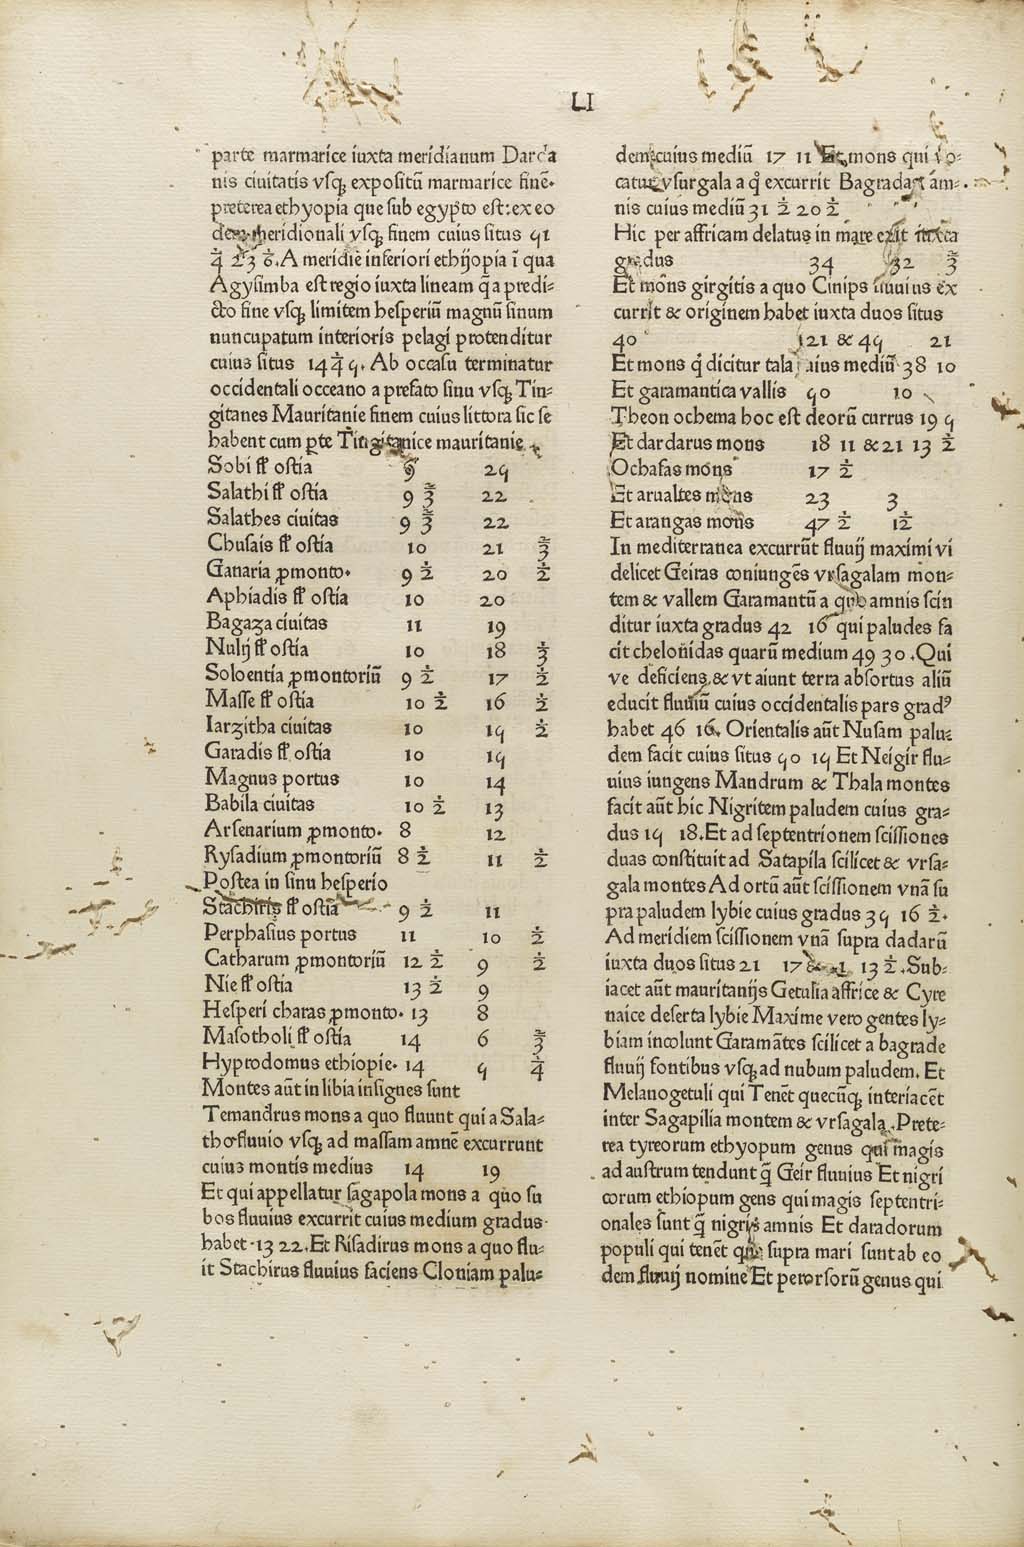 LI
parte marmarice iuxta meridianum Darda
nis ciuitatis vsqꝫ expositū marmarice finē.
preterea ethyopia que sub egypto est: ex eo
dem meridionali vsqꝫ finem cuius situs 51
¼ 23 6. A meridie inferiori ethijopia ī qua
Agysimba est regio iuxta lineam q̄ a predi=
cto fine vsqꝫ limitem hesperiū magnū sinum
nuncupatum interioris pelagi protenditur
cuius situs 14 ¼ 5. Ab occasu terminatur
occidentali occeano a prefato sinu vsqꝫ Tin=
gitanes Mauritanie finem cuius littora sic se
habent cum ꝑte Tingitanice mauritanie
Sobi fl̄ ostia 9 25
Salathi fl̄ ostia 9 ⅔ 22
Salathes ciuitas 9 ⅔ 22
Chusais fl̄ ostia 10 21 ⅔
Ganaria ꝓmonto. 9 ½ 20 ½
Aphiadis fl̄ ostia 10 20
Bagaza ciuitas 11 19
Nulij fl̄ ostia 10 18 ⅓
Soloentia ꝓmontoriū 9 ½ 17 ½
Masse fl̄ ostia 10 ½ 16 ½
Iarzitha ciuitas 10 15 ½
Garadis fl̄ ostia 10 15
Magnus portus 10 14
Babila ciuitas 10 ½ 13
Arsenarium ꝓmonto. 8 12
Rysadium ꝓmontoriū 8 ½ 11 ½
Postea in sinu hesperio
Stachiris fl̄ ostia 9 ½ 11
Perphasius portus 11 10 ½
Catharum ꝓmontoriū 12 ½ 9 ½
Nie fl̄ ostia 13 ½ 9
Hesperi charas ꝓmonto. 13 8
Masotholi fl̄ ostia 14 6 ⅔
Hyprodomus ethiopie. 14 5 ¼
Montes aūt in libia insignes sunt
Temandrus mons a quo fluunt qui a Sala=
tho fluuio vsqꝫ ad massam amnē excurrunt
cuiuꝫ montis medius 14 19
Et qui appellatur sagapola mons a quo su
bos fluuius excurrit cuius medium gradus
habet. 13 22. Et Risadirus mons a quo flu=
it Stachirus fluuius faciens Cloniam palu=
dem cuius mediū 17 11 Et mons qui vo=
catur vsurgala a q̊ excurrit Bagradas am=
nis cuius mediū 31 ½ 20 ½
Hic per affricam delatus in mare exit iuxta
gradus 34 32 ⅔
Et mōns girgitis a quo Cinips fluuius ex
currit & originem habet iuxta duos situs
40 121 & 45 21
Et mons q̊ dicitur tala cuius mediū 38 10
Et garamantica vallis 50 10
Theon ochema hoc est deorū currus 19 5
Et dardarus mons 18 11 & 21 13 ½
Ochafas mons 17 ½
Et arualtes mons 23 3
Et arangas mons 47 ½ 1½
In mediterranea excurrūt fluuij maximi vi
delicet Geiras coniungēs vrsagalam mon=
tem & vallem Garamantū a quo amnis scin
ditur iuxta gradus 42 16 qui paludes fa
cit chelonidas quarū medium 49 30. Qui
ve deficiens & vt aiunt terra absortus aliū
educit fluuiū cuius occidentalis pars gradꝰ
habet 46 16. Orientalis aūt Nusam palu=
dem facit cuius situs 50 15 Et Neigir flu=
uius iungens Mandrum & Thala montes
facit aūt hic Nigritem paludem cuius gra=
dus 15 18. Et ad septentrionem scissiones
duas constituit ad Satapila scilicet & vrsa=
gala montes Ad ortū aūt scissionem vnā su
pra paludem lybie cuius gradus 35 16 ½.
Ad meridiem scissionem vnā supra dadarū
iuxta duos situs 21 17 & 13 ½. Sub=
iacet aūt mauritanijs Getulia affrice & Cyre
naice deserta lybie Maxime vero gentes ly=
biam incolunt Garamātes scilicet a bagrade
fluuij fontibus vsqꝫ ad nubum paludem. Et
Melanogetuli qui Tenēt quecūqꝫ interiacēt
inter Sagapilia montem & vrsagala. Prete=
rea tyreorum ethyopum genus qui magis
ad austrum tendunt q̄ Geir fluuius Et nigri
corum ethiopum gens qui magis septentri=
onales sunt q̄ nigris amnis Et daradorum
populi qui tenēt que supra mari sunt ab eo
dem fluuij nomine Et perorsorū genus qui